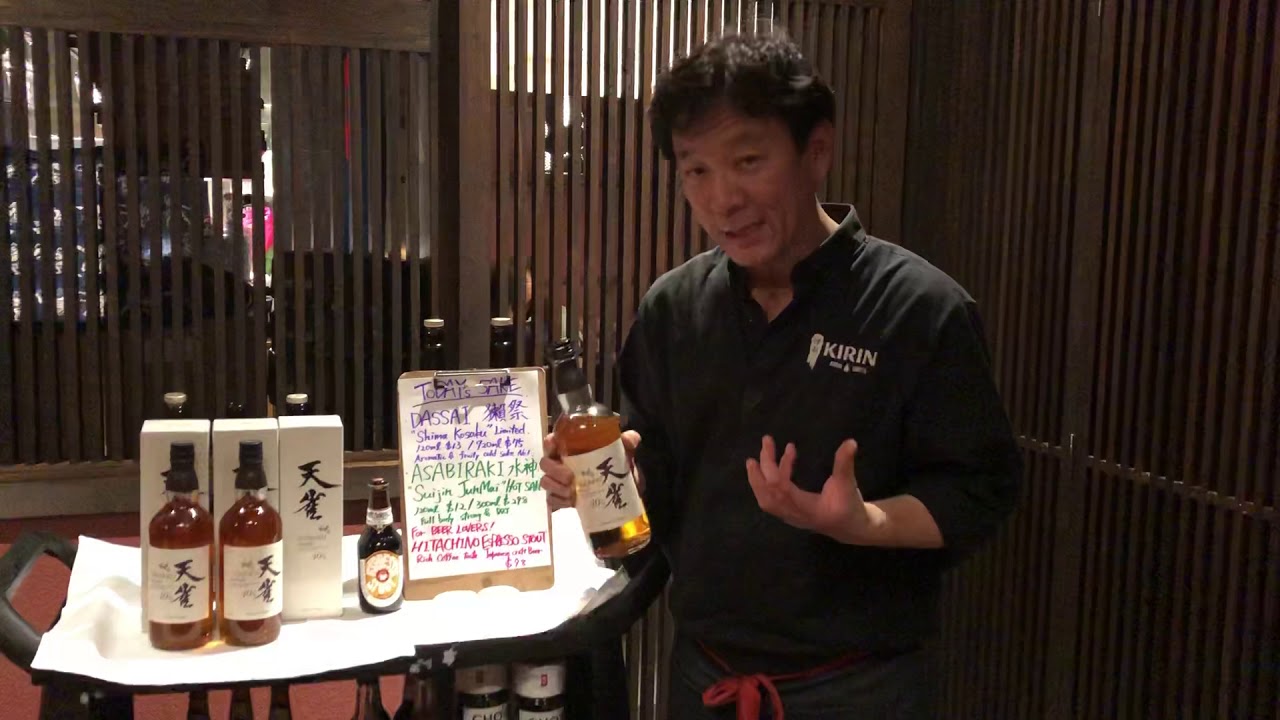 TODAY'S SAKE
DASSAI 獺祭
"Shima Kosaku" Limited.
120ml $13 / 720ml $75
Aromatic & fruity cold sake No.1
ASABIRAKI 水神
"Suijin JunMai" HOT SAKE
120ml $12 / 300ml $29.8
Full body strong & DRY
For BEER LOVERS!
HITACHINO ESPRESSO STOUT
Rich Coffee Taste Japanese craft Beer
$9.8
KIRIN
天雀
天雀
天雀
天雀